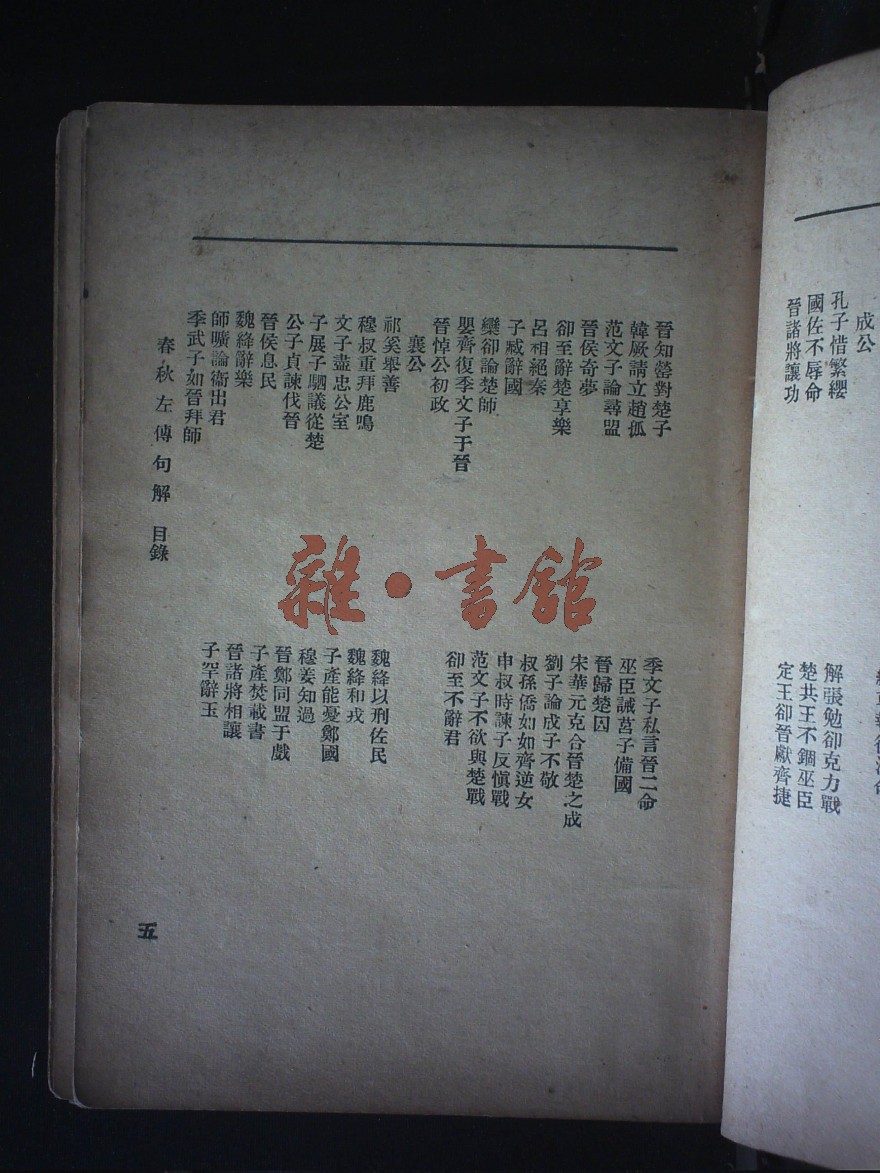 成公
孔子惜繁纓
國佐不辱命
晉諸將讓功
解張勉卻克力戰
楚共王不錮巫臣
定王卻晉獻齊捷
晉知罃對楚子
韓厥請立趙孤
范文子論尋盟
晉侯奇夢
卻至辭楚享樂
呂相絕秦
子臧辭國
欒卻論楚師
嬰齊復季文子于晉
晉悼公初政
襄公
祁奚舉善
穆叔重拜鹿鳴
文子盡忠公室
子展子駟議從楚
公子貞諫伐晉
晉侯息民
魏絳辭樂
師曠論衞出君
季武子如晉拜師
季文子私言晉二命
巫臣誡莒子備國
晉歸楚囚
宋華元克合晉楚之成
劉子論成子不敬
叔孫僑如如齊逆女
申叔時諫子反愼戰
范文子不欲與楚戰
卻至不辭君
魏絳以刑佐民
魏絳和戎
子產能憂鄭國
穆姜知過
晉鄭同盟于戲
子產焚載書
晉諸將相讓
子罕辭玉
春秋左傳句解 目錄
五
雜·書館